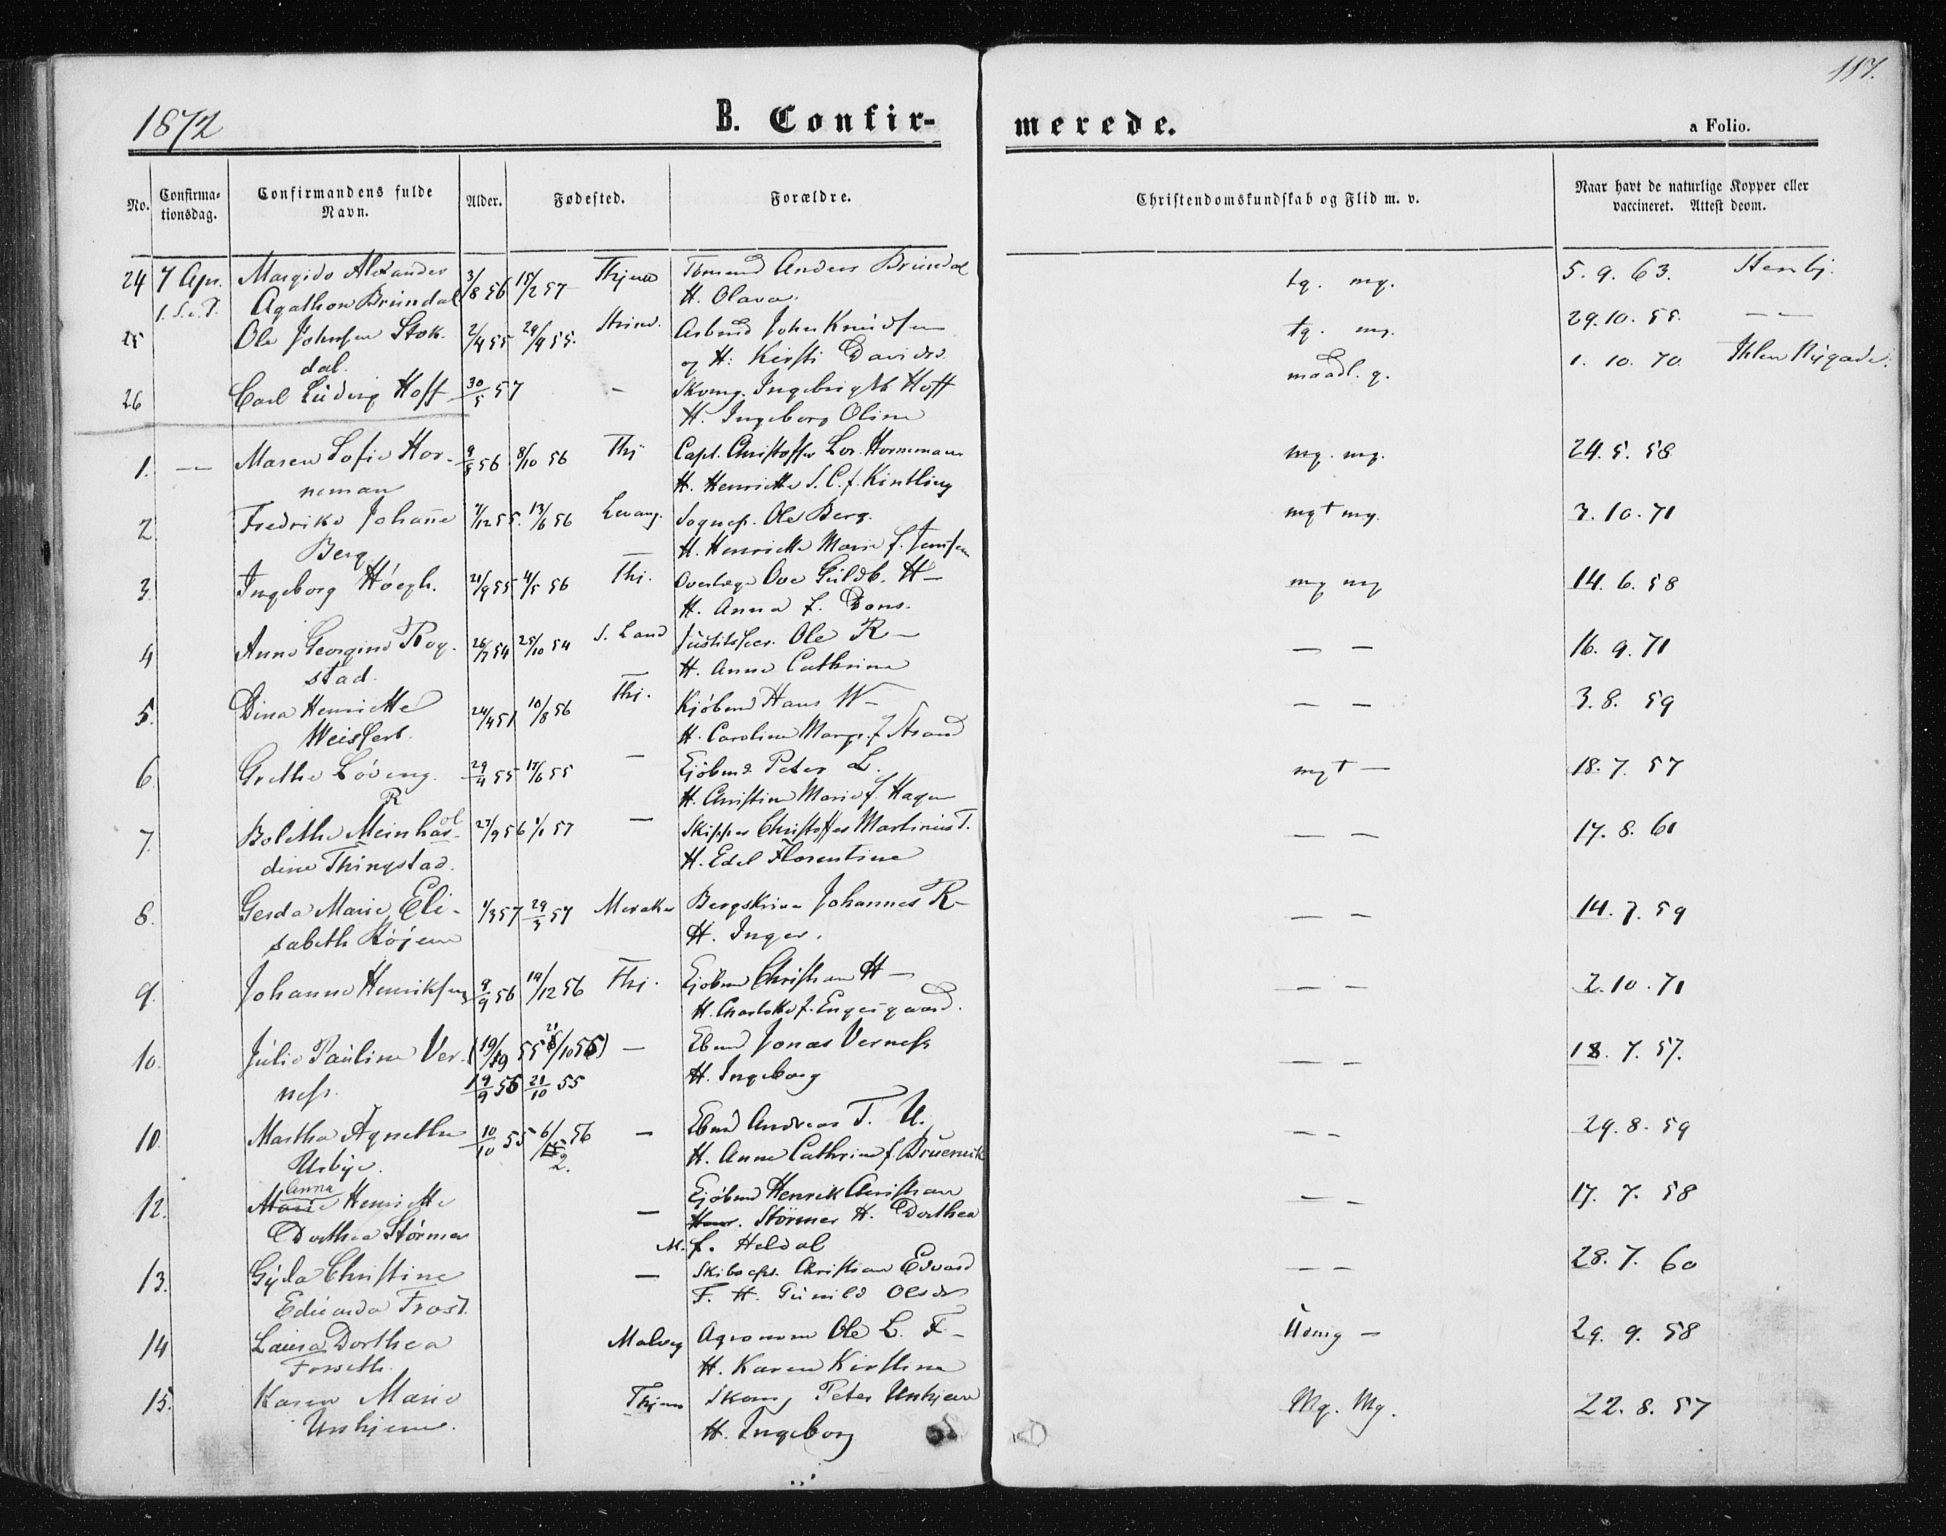 117.
1872 B. Confir- merede. a Folio.
No. Confirma- tionsdag. Confirmandens fulde Navn. Alder. Fødested. Forældre. Christendomskundskab og Flid m. v. Naar havt de naturlige Kopper eller vaccineret. Attest deom.
24 7 Apr. Margido Alexander 3/8 56 15/2 57 Thjem Anders Bründal tg. mg. 5. 9. 63.
1. S. e. P. Agathon Bründal H. Olava
25 Ole Johnsen Stok- 2/4 55 29/4 55. Strind. Arbmd John Knudsen tg. mg. 29. 10. 55. — —
dal. og H. Kirsti Davids.
26 Carl Ludvig Hoff 30/5 57 — Skomg. Ingebrigt Hoff maadl. g. 1. 10. 70. Ihlen Nygade.
H. Ingeborg Oline
1. — Maren Sofie Hor- 56 8/10 56 Thj Capt. Christoffer Lor. Hornemann mg. mg. 24. 5. 58
neman H. Henriette S. C. f. Kintling
2 Fredrike Johanne 7/12 55. 13/6 56 Levang. Sognep. Ole Berg. mgt mg. 3. 10. 71
Berg H. Henriette Marie f. Jensen
3. Ingeborg Høegh. 21/9 55 4/5 56 Thj. Overlæge Ove Guldb. H— mg mg 14. 6. 58
H. Anna f. Dons.
4 Anne Georgine Rog- 26/7 54 25/10 54 S. Land Ole R— — — 16. 9. 71
stad. H. Anne Cathrine
5. Dina Henriette 24/4 51 10/8 56 Thj. Kjøbmd Hans W— — — 3. 8. 59
Weisfert. H. Caroline Margr. f. Strand
6. Grethe Løveng. 29/4 55 17/6 55 — Kjøbmd Peter L. mgt — 18. 7. 57
H. Christine Marie f. Hagen
7. Bolethe Meinhar- 27/9 56 1/1 57 — Skipper Christoffer Martinius T. — — 17. 8. 61
dine Thingstad. H. Edel Florentine
8. Gerda Marie Eli- 1/3 57 29/3 57 Meraker Bergskriver Johannes R— — — 14. 7. 59
sabeth H. Inger.
9. Johanne Henriksen 9/9 56 19/12 56 Thj. Kjøbmd Christian H— — — 2. 10. 71
H. Charlotte f. Engesgaard.
10. Julie Pauline Ver- (19/9 55 21/10 55) — Ebmd Jonas Verness — — 18. 7. 57.
ness. 19/9 55 21/10 55 H. Ingeborg
10. Martha Agnethe 10/10 55 6/2 56 — Ebmd Andreas T. U. — — 29. 8. 59
Usbye. H. Anne Cathrine f.
12. Anna Henriette — Kjøbmd Henrik Christian — — 17. 7. 58
Dorthea Størmer Størmer H. Dorthea
M. f. Heldal
13. Gyda Christine — Christian Edvard — — 28. 7. 60
Edvarda Frost. F. H. Gunild Olsd
14 Laura Dorthea Malvig Agronom Ole L. F— Udmg — 29. 9. 58
Forseth. H. Karen Kirstine
15. Karen Marie Thjem Skomg Peter Unhjem Mg. Mg. 22. 8. 57
Unhjem. H. Ingeborg